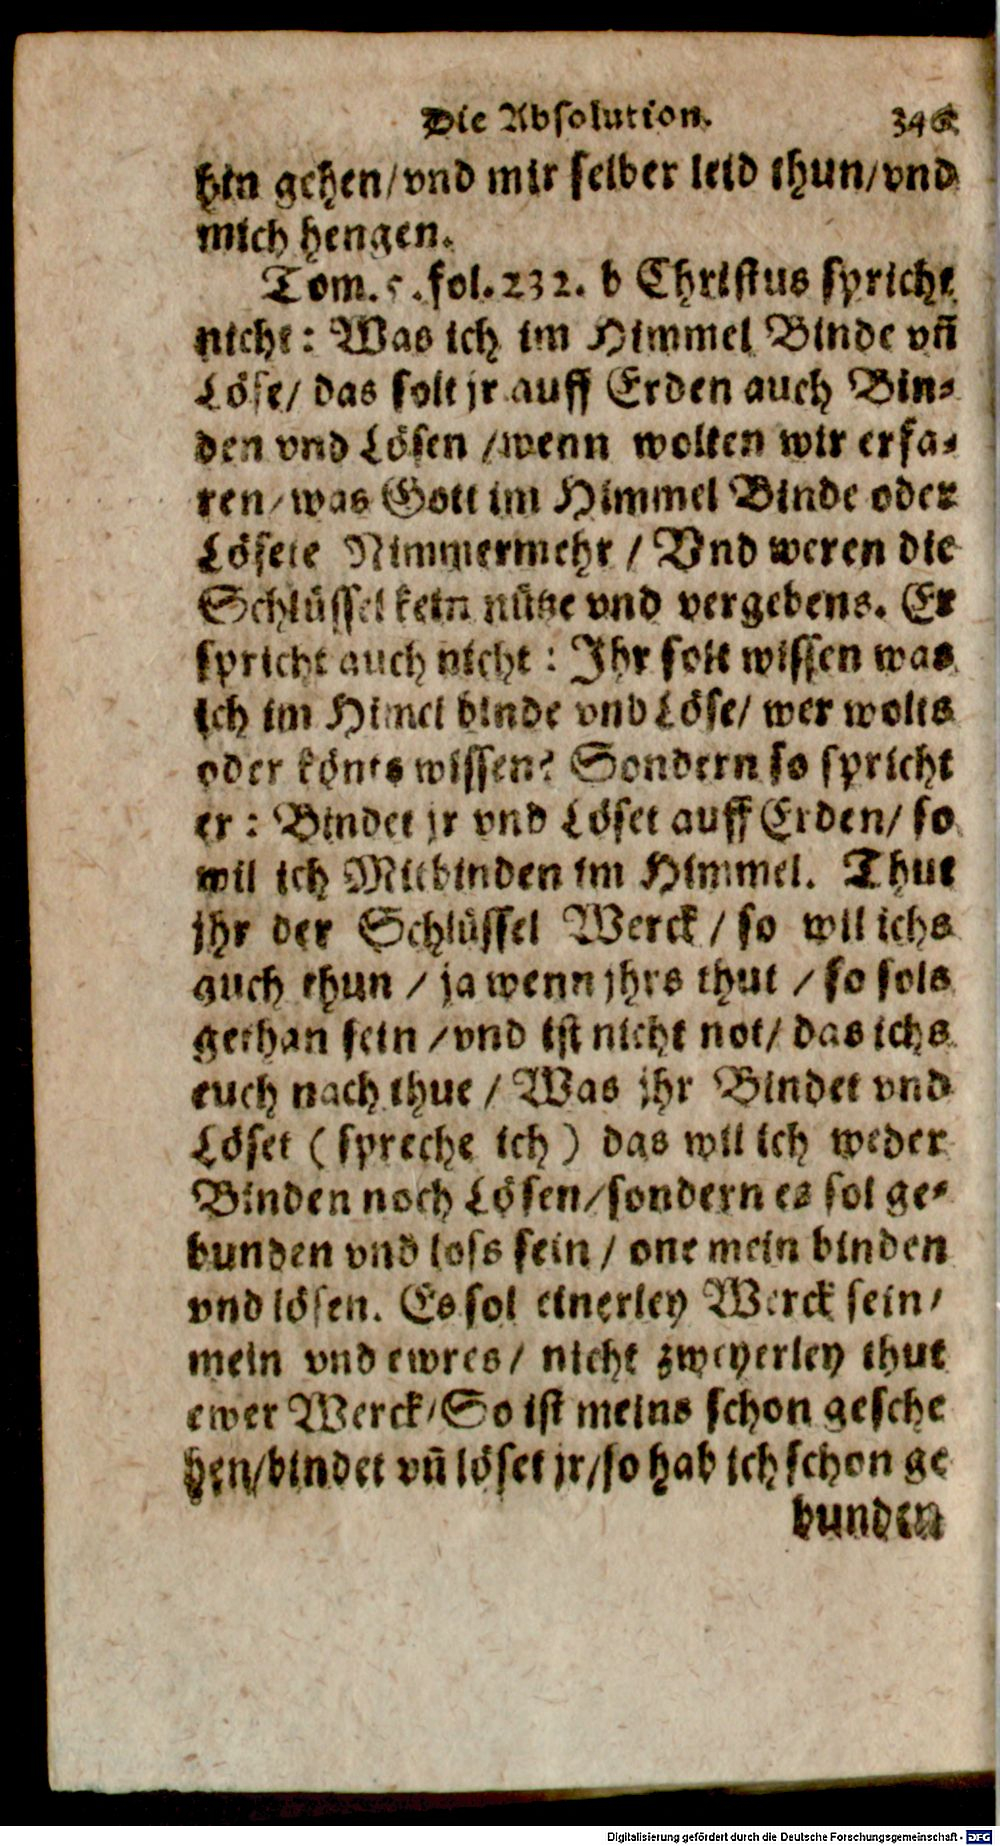 Die Absolution. 346
hin gehen/vnd mir selber leid thun/vnd
mich hengen.
Tom. 5. fol. 232. b Christus spricht
nicht: Was ich im Himmel Binde vn̄
Löse/ das solt jr auff Erden auch Bin-
den vnd Lösen /wenn wolten wir erfa-
ren/was Gott im Himmel Binde oder
Lösete Nimmermehr / Vnd weren die
Schlüssel kein nütze vnd vergebens. Er
spricht auch nicht: Ihr solt wissen was
ich im Himel binde vnd Löse/ wer wolts
oder könts wissen? Sondern so spricht
er: Bindet jr vnd Löset auff Erden/ so
wil ich Mitbinden im Himmel. Thut
jhr der Schlüssel Werck / so wil ichs
auch thun / ja wenn jhrs thut / so sols
gethan sein /vnd ist nicht not/ das ichs
euch nach thue / Was jhr Bindet vnd
Löset ( spreche ich ) das wil ich weder
Binden noch Lösen/sondern es sol ge-
bunden vnd loss sein / one mein binden
vnd lösen. Es sol einerley Werck sein/
mein vnd ewres/ nicht zweyerley thut
ewer Werck/So ist meins schon gesche
hen/bindet vn̄ löset jr/so hab ich schon ge
bunden
Digitalisierung gefördert durch die Deutsche Forschungsgemeinschaft - DFG